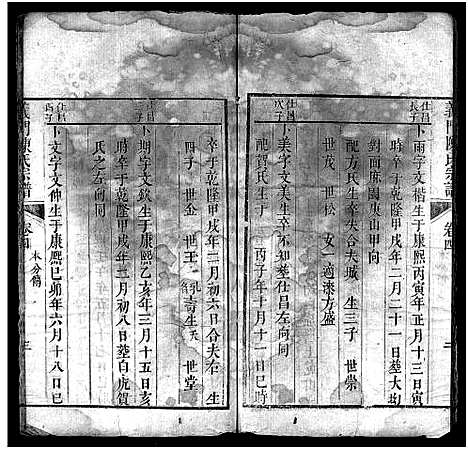 義門陳氏宗譜
卷四
仕昌長子
卜雨字文楷生于康熙丙寅年正月十三日寅
時卒于乾隆甲戌年二月二十一日葬大坳
對面麻園東山甲向
配方氏生卒失合夫城 生三子 世崇
世茂 世松 女一適漆方盛
仕昌次子
卜美字文美生卒不知葬仕昌左向同
配賀氏生于 丙子年十月十一日巳時
卒于乾隆甲戌年二月初六日合夫右 生
四子 世金 世玉 乳名壽生夭 世堂
仕昌三子
卜期字文欽生于康熙乙亥年三月十五日亥
時卒于乾隆甲戌年二月初八日葬白虎賀
氏之左向同
仕昌四子
卜文字文伸生于康熙己卯年六月十八日巳
義門陳氏宗譜
卷四
本分修
三